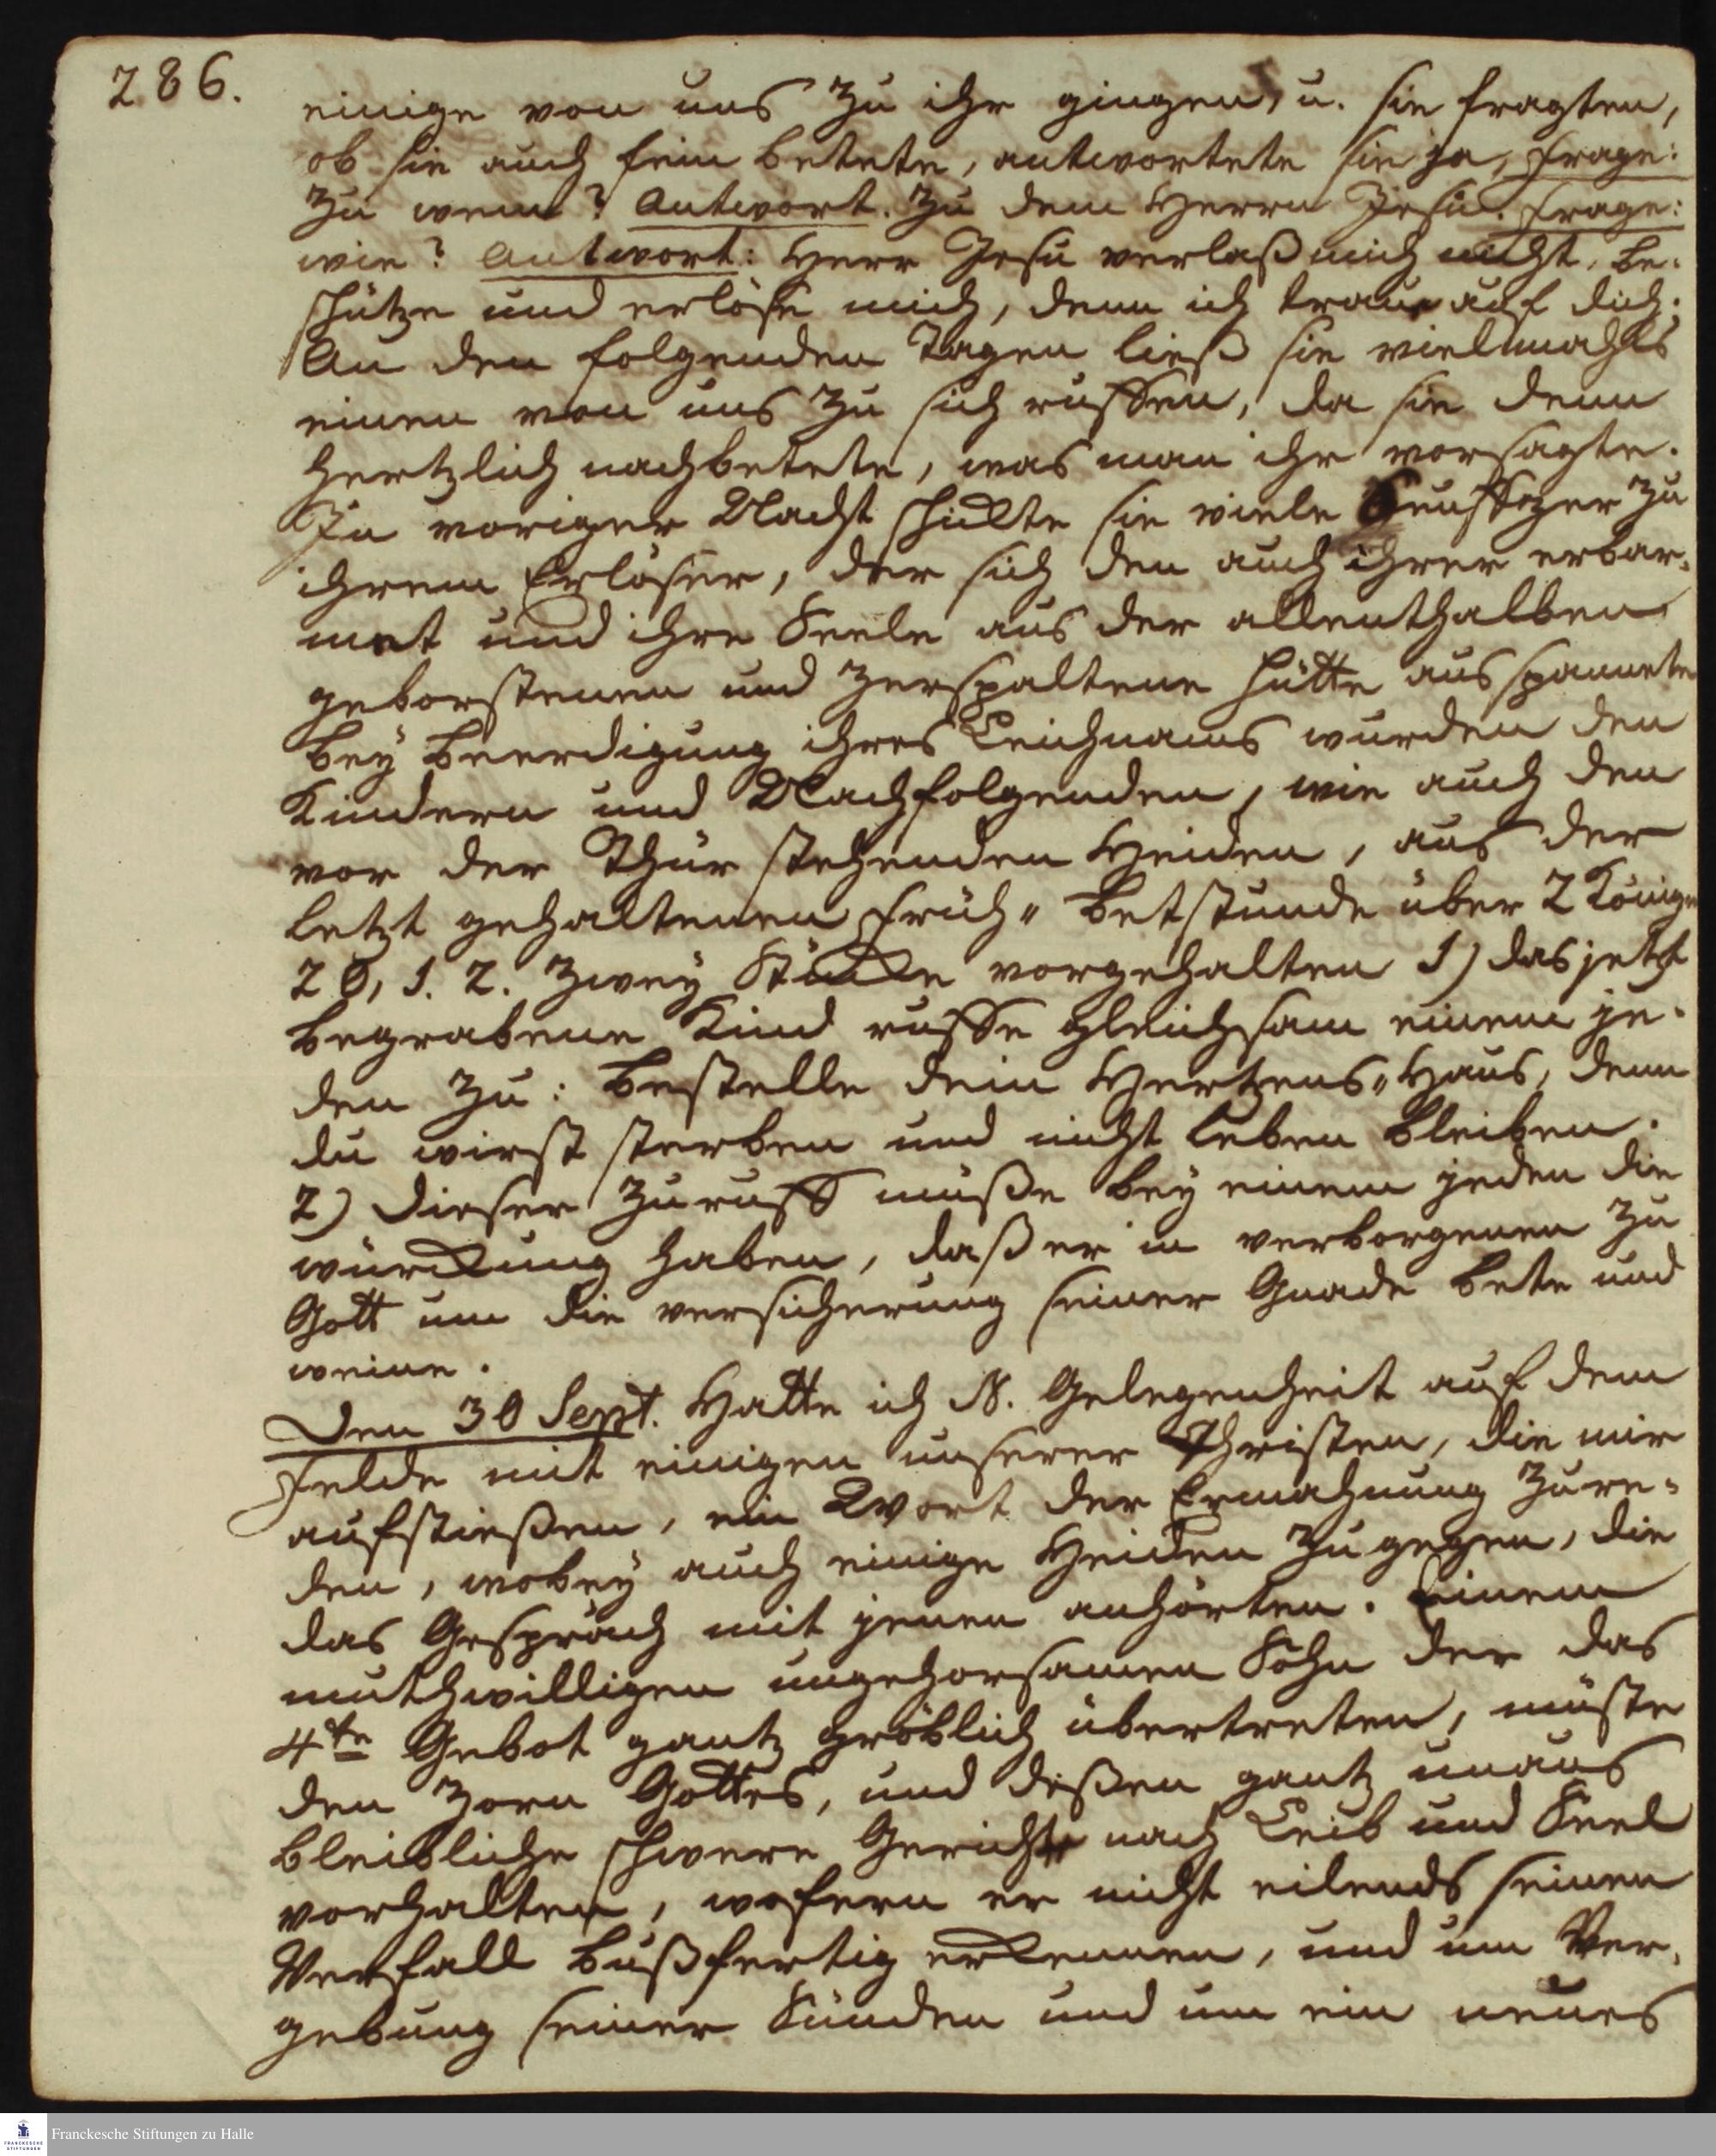 286.
einige von uns zu ihr gingen, u. sie fragten,
ob sie auch fein betete, antwortete sie ja, Frage:
zu wem? Antwort. Zu dem Herrn Jesu. Frage:
wie? Antwort: Herr Jesu verlaß mich nicht, be-
schütze und erlöse mich, denn ich traue auf dich.
An den folgenden Tagen ließ sie vielmahls
einen von uns zu sich ruffen, da sie denn
hertzlich nachbetete, was man ihr vorsagte.
In voriger Nacht schickte sie viele Seuffzer zu
ihrem Erlöser, der sich den auch ihrer erbar-
met und ihre Seele aus der allenthalben
geborstenen und zerspaltene Hütte ausspannete
Bey Beerdigung ihres Leichnams wurden den
Kindern und Nachfolgenden, wie auch den
vor der Thür stehenden Heiden, aus der
letzt gehaltenen Früh-Betstunde über 2 Könige
20, 1. 2. zwey Stücke vorgehalten 1) das jetzt
begrabene Kind ruffe gleichsam einem je-
den zu: Bestelle dein Hertzens-Haus, denn
du wirst sterben und nicht leben bleiben.
2) Dieser Zuruff müße bey einem jeden die
würckung haben, daß er in verborgenen zu
Gott um die versicherung seiner Gnade bete und
weine.
Den 30 Sept. Hatte ich N. Gelegenheit auf dem
Felde mit einigen unserer Christen, die mir
aufstießen, ein Wort der Ermahnung zu re-
den, wobey auch einige Heiden zugegen, die
das Gespräch mit jenen anhörten. Einem
muthwilligen ungehorsamen Sohn der das
4te Gebot gantz gröblich übertreten, müste
den Zorn Gottes, und deßen gantz unaus
bleibliche schwere Gerichte nach Leib und Seel
vorhalten, wofern er nicht eilends seinen
Verfall bußfertig erkennen, und um Ver-
gebung seiner Sünden und um ein neues
Franckesche Stiftungen zu Halle